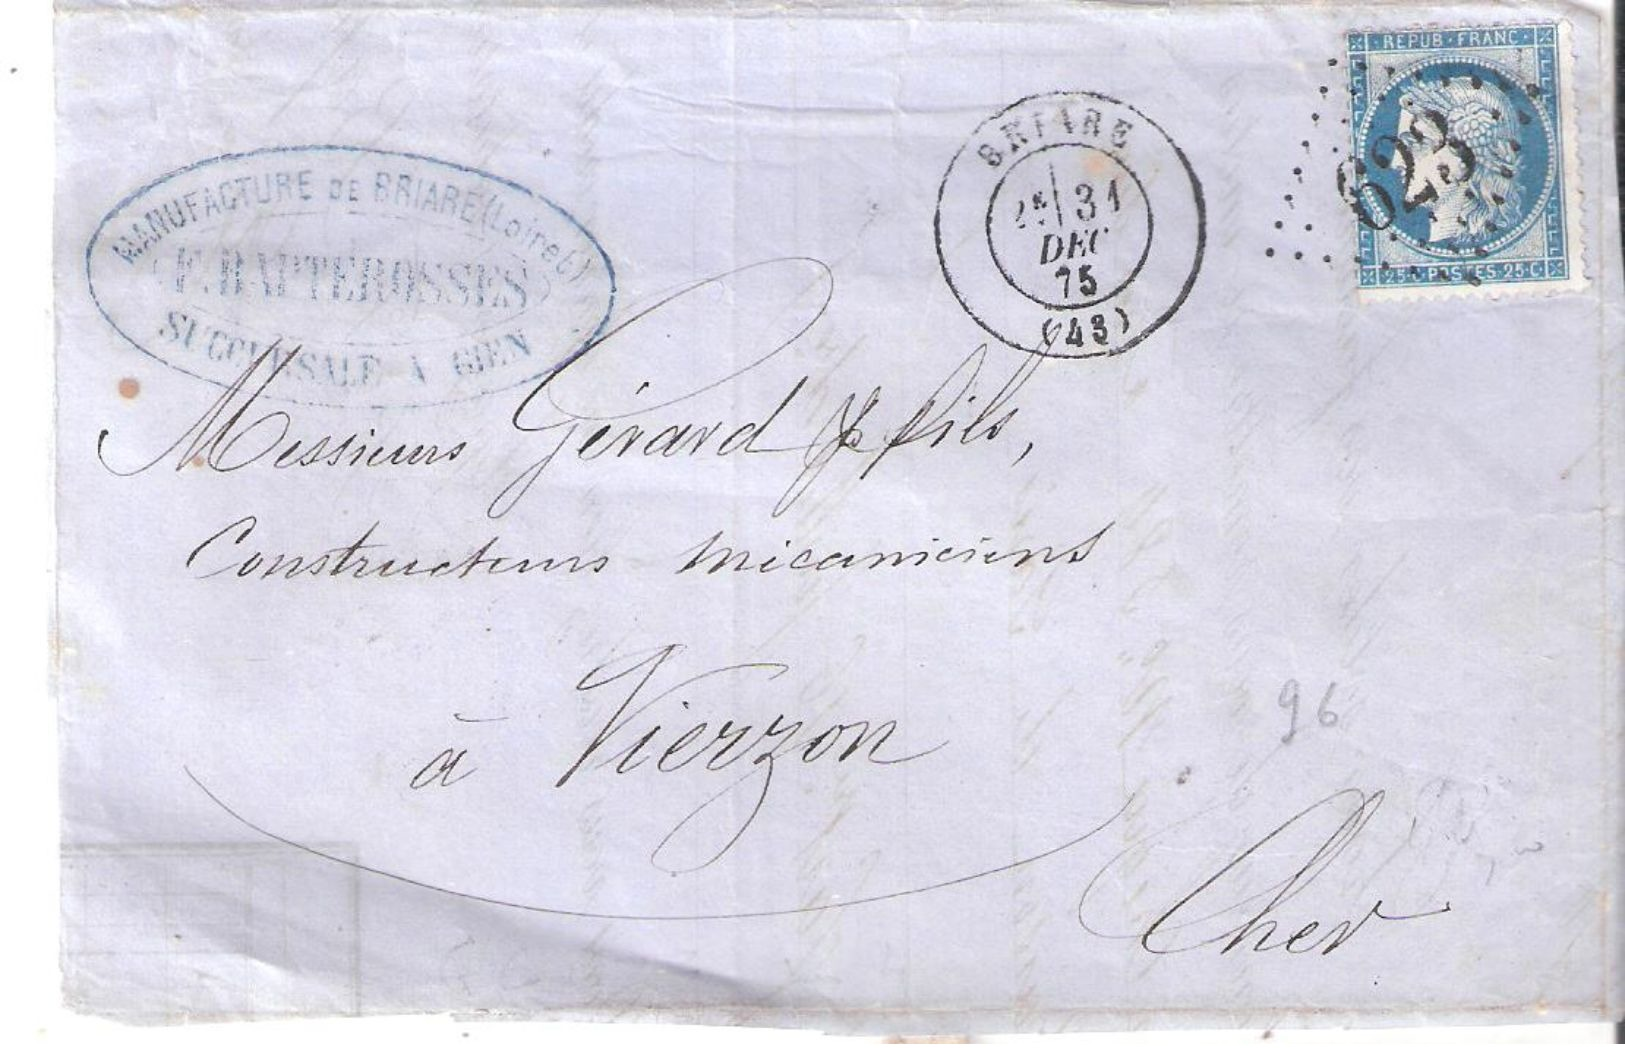 REPUB·FRANC·
623
25·C·POSTES·25·C·
BRIARE
2E 31
DEC
75
(43)
MANUFACTURE DE BRIARE (Loiret)
F. BAPTEROSSES
SUCCURSALE A GIEN
Messieurs Gérard & fils,
Constructeurs Mécaniciens
à Vierzon
96
Cher